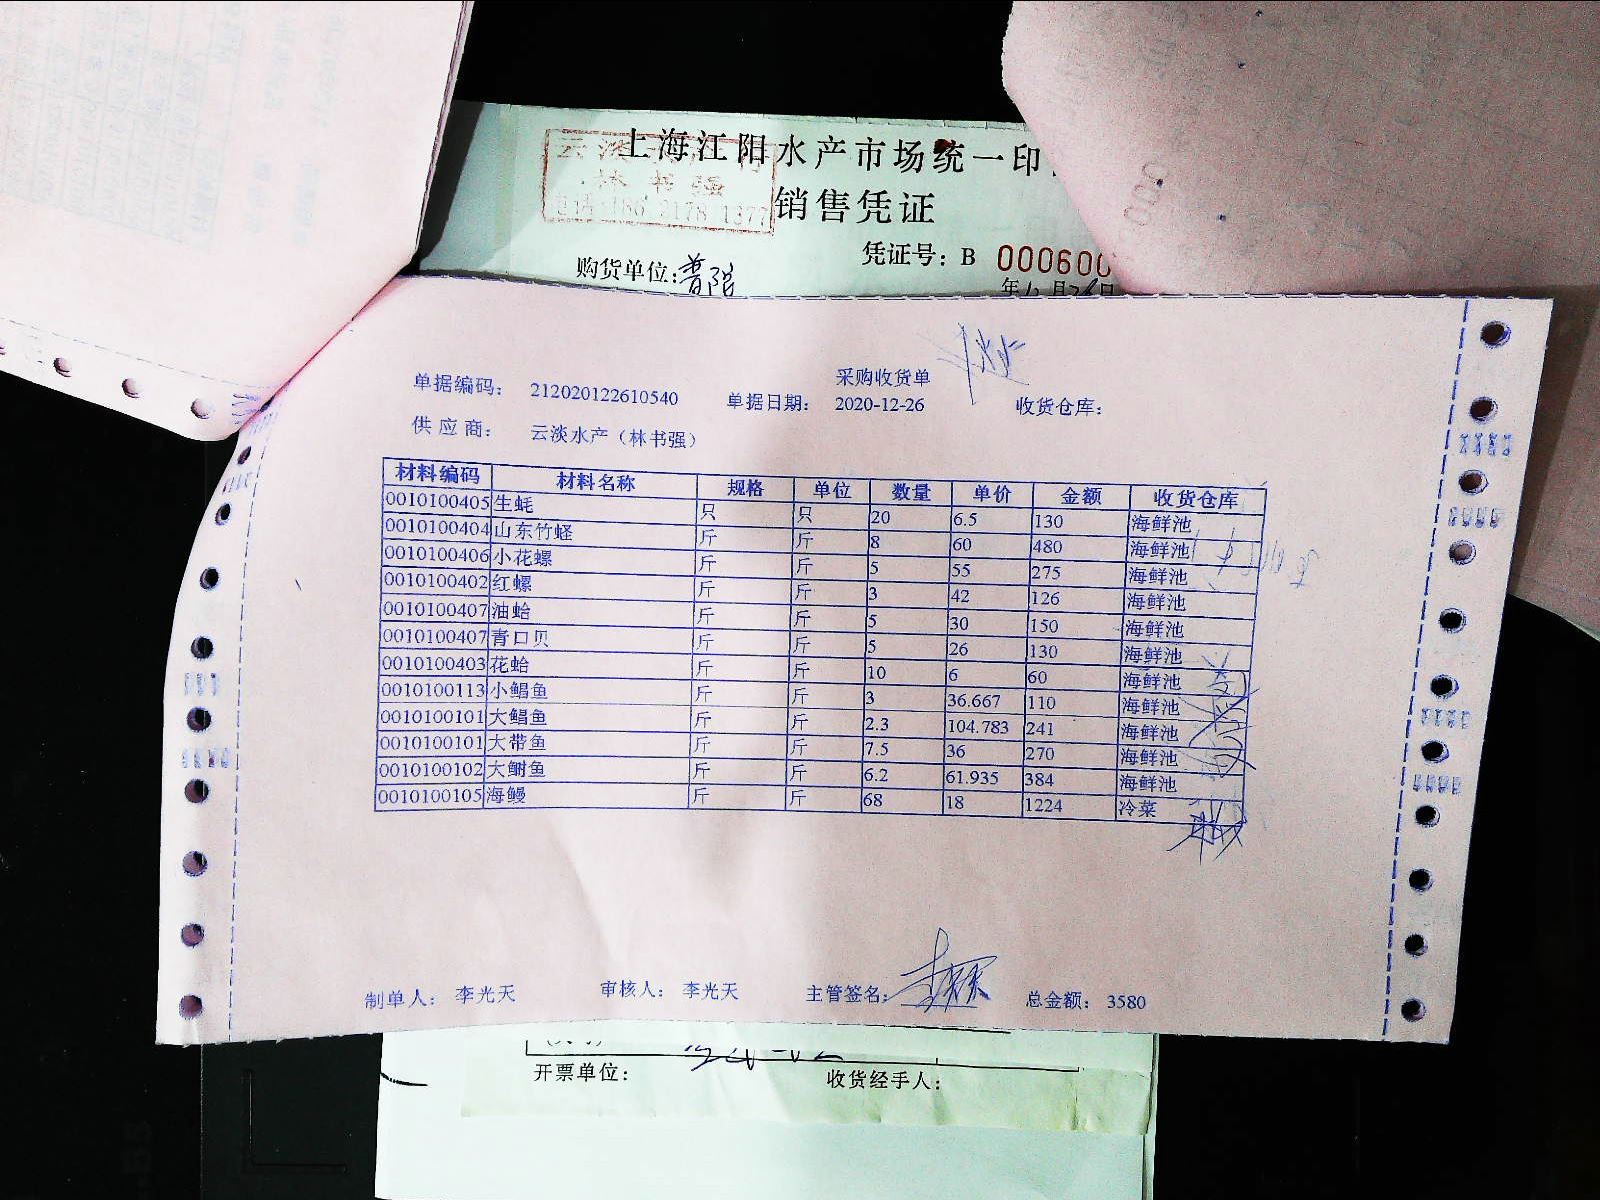 上海江阳水产市场统一印
林书强
销售凭证
凭证号：B 000600
购货单位：普陀
年12月26日
采购收货单
单据编码： 212020122610540 单据日期： 2020-12-26 收货仓库：
供应商： 云淡水产（林书强）
材料编码 材料名称 规格 单位 数量 单价 金额 收货仓库
0010100405 生蚝 只 只 20 6.5 130 海鲜池
0010100404 山东竹蛏 斤 斤 8 60 480 海鲜池
0010100406 小花螺 斤 斤 5 55 275 海鲜池
0010100402 红螺 斤 斤 3 42 126 海鲜池
0010100407 油蛤 斤 斤 5 30 150 海鲜池
0010100407 青口贝 斤 斤 5 26 130 海鲜池
0010100403 花蛤 斤 斤 10 6 60 海鲜池
0010100113 小鲳鱼 斤 斤 3 36.667 110 海鲜池
0010100101 大鲳鱼 斤 斤 2.3 104.783 241 海鲜池
0010100101 大带鱼 斤 斤 7.5 36 270 海鲜池
0010100102 大鲥鱼 斤 斤 6.2 61.935 384 海鲜池
0010100105 海鳗 斤 斤 68 18 1224 冷菜
制单人： 李光天 审核人： 李光天 主管签名： 总金额： 3580
开票单位： 收货经手人：